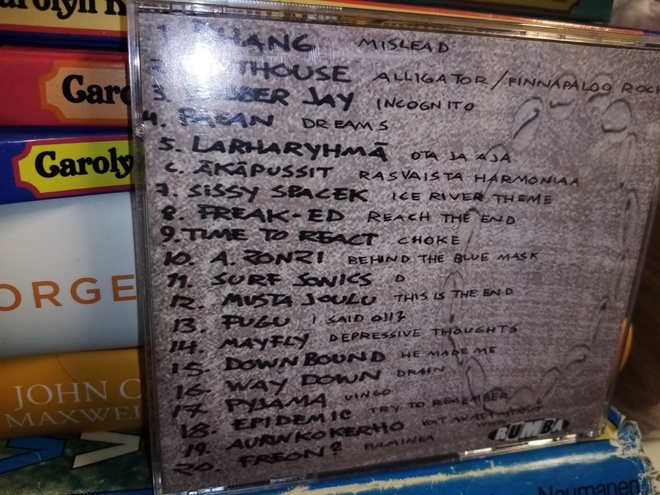 Carolyn K
Car
Caroly
ORGE
JOHN C
MAXWE
1. HANG MISLEAD
THOUSE ALLIGATOR/FINNAPALOO ROCK
3. BER JAY INCOGNITO
4. PAEAN DREAMS
5. LARHARYHMÄ OTA JA AJA
6. ÄKÄPUSSIT RASVAISTA HARMONIAA
7. SISSY SPACEK ICE RIVER THEME
8. FREAK-ED REACH THE END
9. TIME TO REACT CHOKE
10. A. RONZI BEHIND THE BLUE MASK
11. SURF SONICS D
12. MUSTA JOULU THIS IS THE END
13. FUGU I SAID
14. MAYFLY DEPRESSIVE THOUGHTS
15. DOWNBOUND HE MADE ME
16. WAY DOWN DRAIN
17. PYJAMA VINGO
18. EPIDEMIC TRY TO REMEMBER
19. AURINKOKERHO
20. FREON?
RUMBA
Naumanen